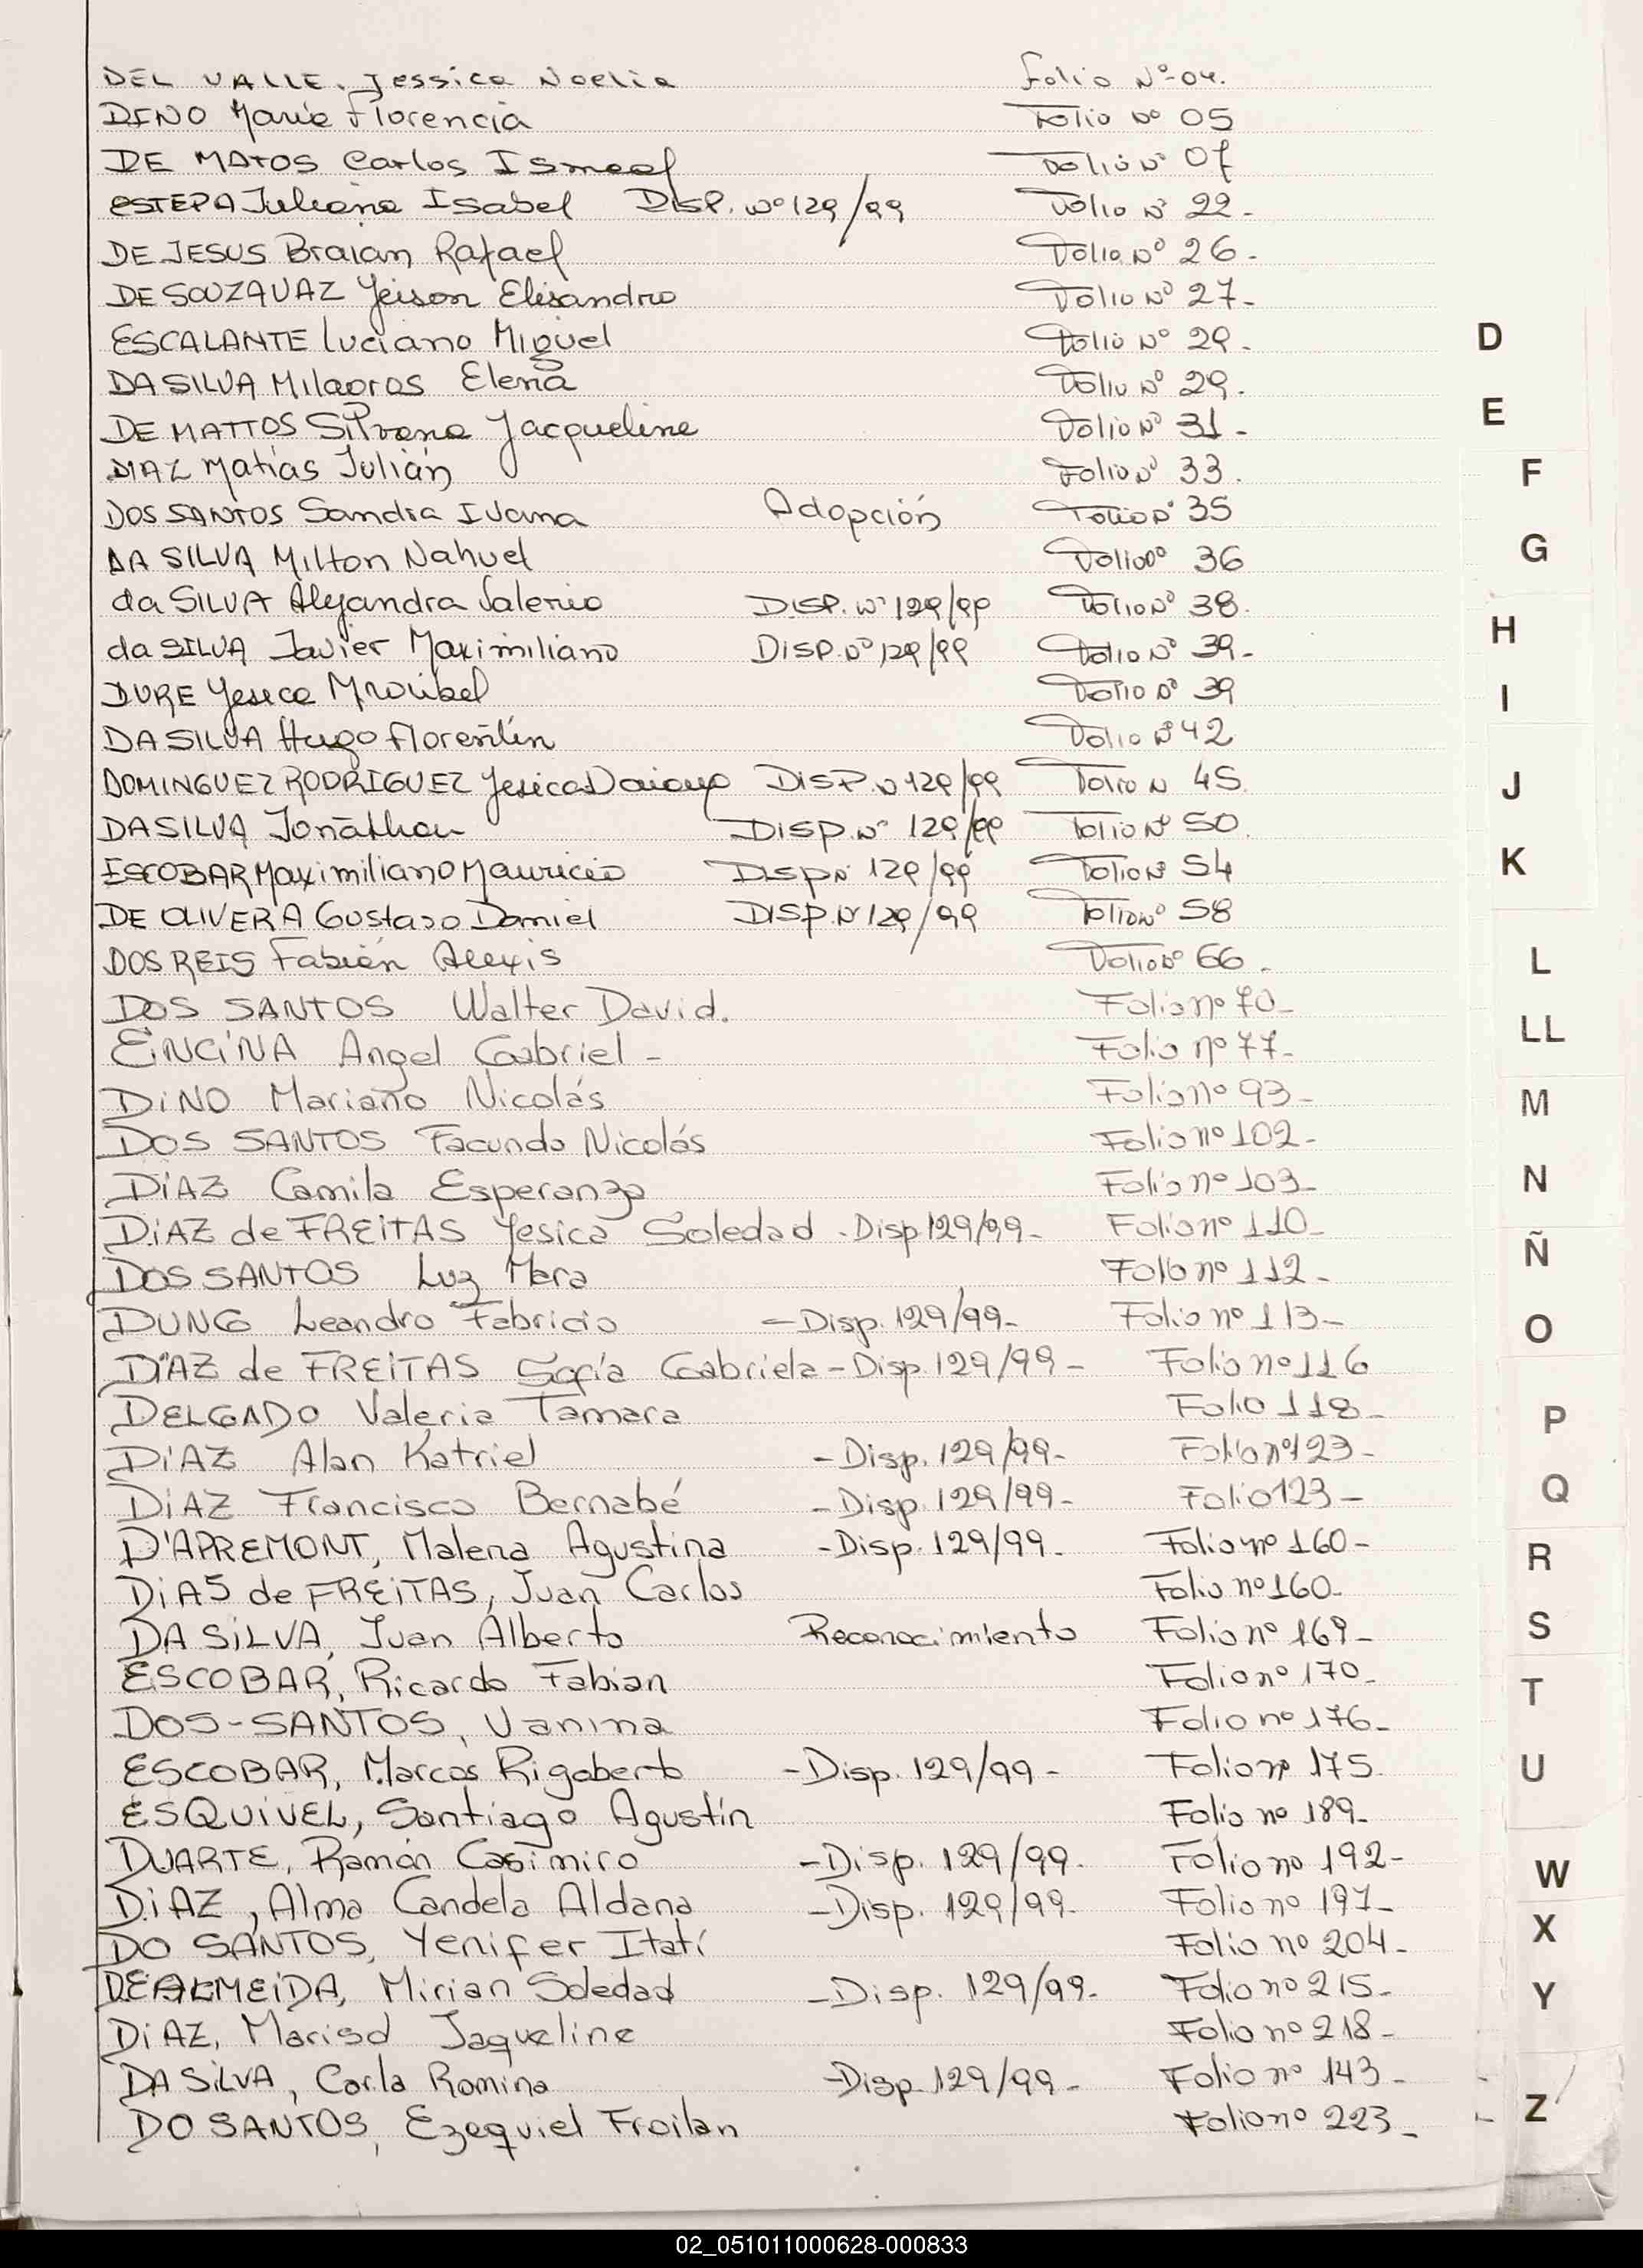 DEL VALLE. Jessica Noelia Folio Nº 04.
DINO María Florencia Folio Nº 05
DE MATOS Carlos Ismael Folio Nº 07
ESTEPA Juliana Isabel DISP. Nº 129/99 Folio Nº 22-
DE JESUS Braian Rafael Folio Nº 26-
DE SOUZA VAZ Yeison Elisandro Folio Nº 27-
ESCALANTE Luciano Miguel Folio Nº 29-
DA SILVA Milagros Elena Folio Nº 29.
DE MATTOS Silvana Jacqueline Folio Nº 31-
DIAZ Matías Julián Folio Nº 33.
DOS SANTOS Sandra Ivana Adopción Folio Nº 35
DA SILVA Milton Nahuel Folio Nº 36
da SILVA Alejandra Valeria DISP. Nº 129/99 Folio Nº 38.
da SILVA Javier Maximiliano DISP. Nº 129/99 Folio Nº 39-
DURE Yesica Folio Nº 39
DA SILVA Hugo Florentín Folio Nº 42
DOMINGUEZ RODRIGUEZ Yesica Daiana DISP. N 129/99 Folio N 45
DA SILVA Jonathan DISP. Nº 129/99 Folio Nº 50.
ESCOBAR Maximiliano Mauricio DISP Nº 129/99 Folio Nº 54
DE OLIVERA Gustavo Daniel DISP. Nº 129/99 Folio Nº 58
DOS REIS Fabián Alexis Folio Nº 66.
DOS SANTOS Walter David. Folio nº 70-
ENCiNA Angel Gabriel - Folio nº 77-
DiNO Mariano Nicolás Folio nº 93-
DOS SANTOS Facundo Nicolás Folio nº 102-
DiAZ Camila Esperanza Folio nº 103-
DiAZ de FREiTAS Yesica Soledad - Disp 129/99- Folio nº 110-
DOS SANTOS Luz Mara Folio nº 112-
DUNG Leandro Fabricio -Disp. 129/99- Folio nº 113-
DiAZ de FREiTAS Sofía Gabriela -Disp. 129/99- Folio nº 116
DELGADO Valeria Tamara Folio 118-
DiAZ Alan Katriel -Disp. 129/99- Folio nº 123-
DiAZ Francisco Bernabé -Disp. 129/99- Folio 123-
D'APREMONT, Malena Agustina -Disp. 129/99- Folio nº 160-
DiAS de FREiTAS, Juan Carlos Folio nº 160-
DA SiLVA, Juan Alberto Reconocimiento Folio nº 169-
ESCOBAR, Ricardo Fabian Folio nº 170-
DOS-SANTOS, Vanina Folio nº 176-
ESCOBAR, Marcos Rigoberto -Disp. 129/99- Folio nº 175
ESQUiVEL, Santiago Agustín Folio nº 189-
DUARTE, Ramón Casimiro -Disp. 129/99- Folio nº 192-
DiAZ, Alma Candela Aldana -Disp. 129/99- Folio nº 197-
DO SANTOS, Yenifer Itatí Folio nº 204-
DE ALMEiDA, Mirian Soledad -Disp. 129/99- Folio nº 215-
DiAZ, Marisol Jaqueline Folio nº 218-
DA SiLVA, Carla Romina -Disp. 129/99- Folio nº 143-
DO SANTOS, Ezequiel Froilan Folio nº 223-
D
E
F
G
H
I
J
K
L
LL
M
N
Ñ
O
P
Q
R
S
T
U
W
X
Y
Z
02_051011000628-000833